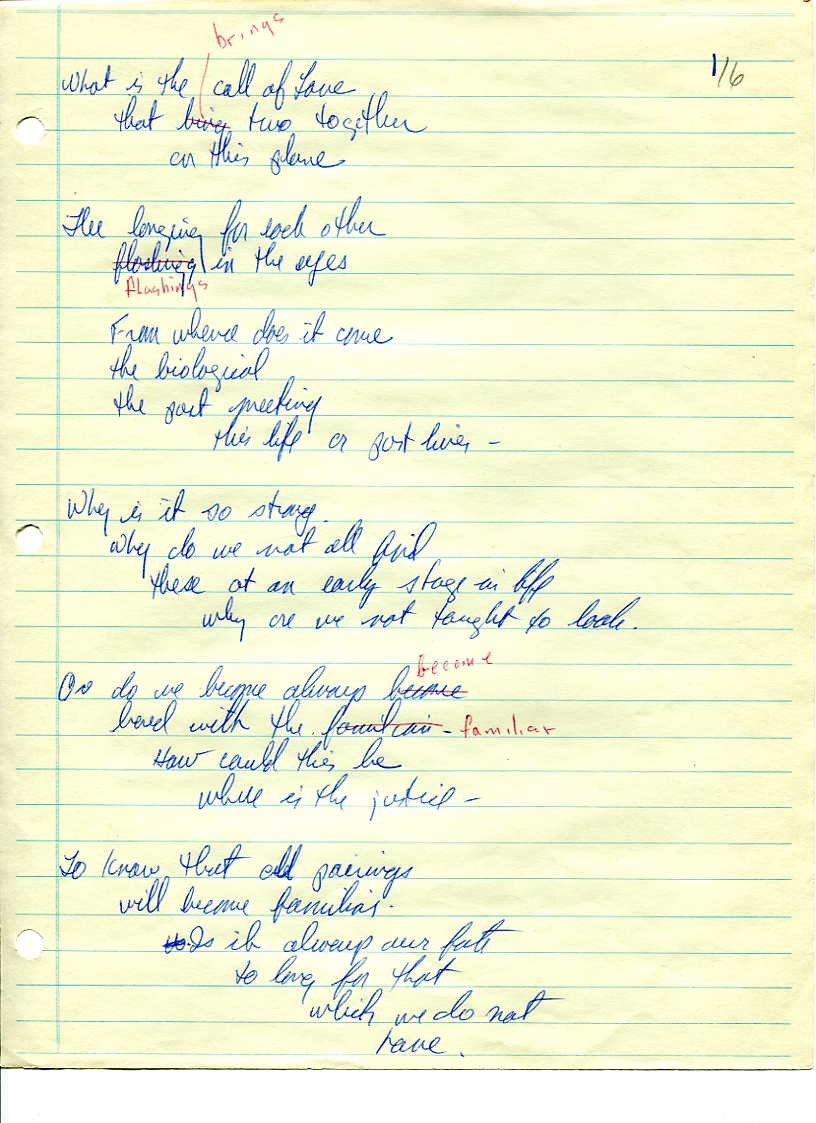 brings
1/6
What is the call of Love
that bring two together
on this plane
The longing for each other
flashing in the eyes
flashings
From whence does it come
the biological
the past meeting
this life or past lives -
Why is it so strong.
Why do we not all find
these at an early stage in life
why are we not taught to look.
become
Or do we become always become
bored with the familiar - familiar
How could this be
where is the justice -
To know that all pairings
will become familiar.
Is it always our fate
to long for that
which we do not
have.